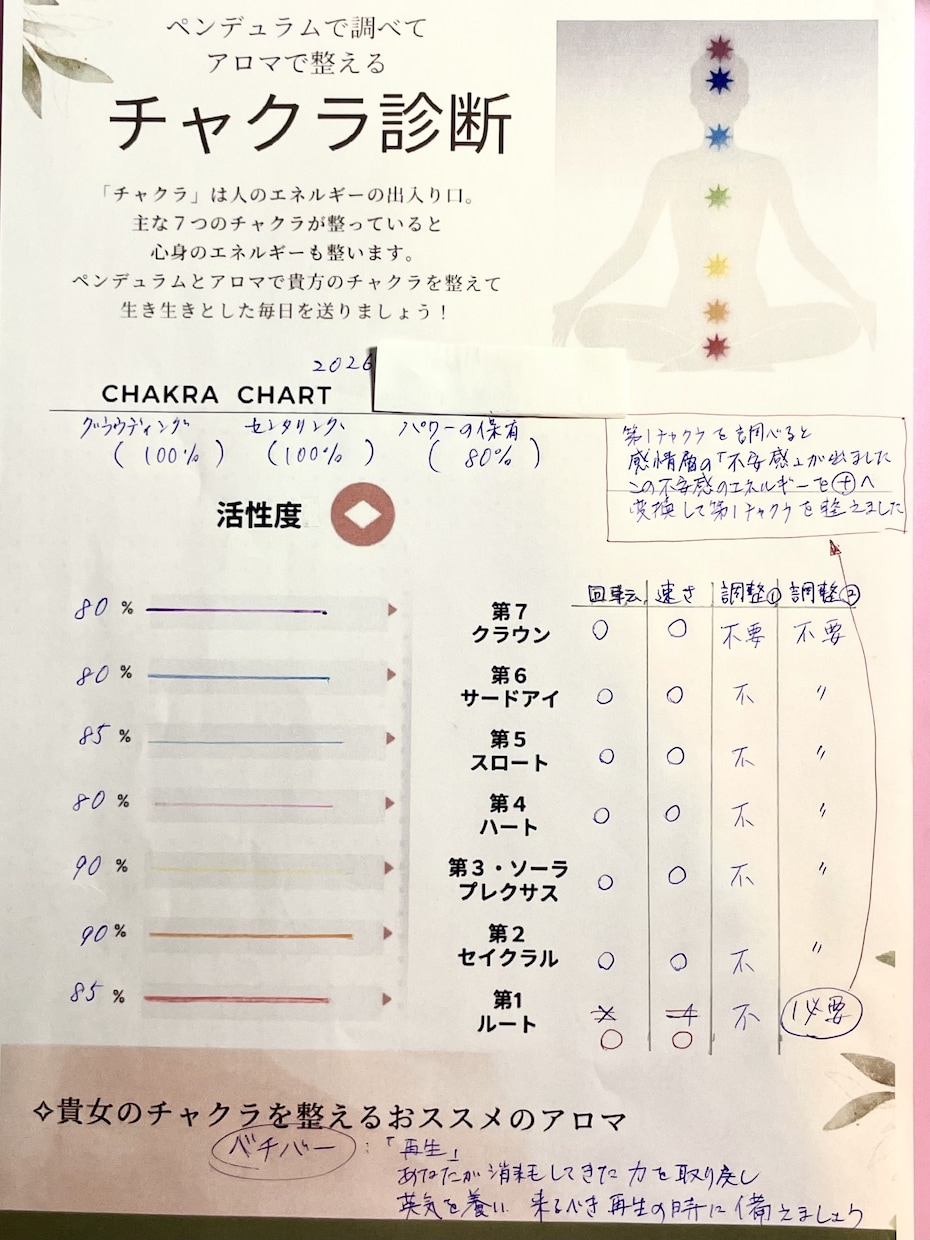 ペンデュラムで調べて
アロマで整える
チャクラ診断
「チャクラ」は人のエネルギーの出入り口。
主な７つのチャクラが整っていると
心身のエネルギーも整います。
ペンデュラムとアロマで貴方のチャクラを整えて
生き生きとした毎日を送りましょう！
2026
CHAKRA CHART
グラウディング センタリング パワーの保有
(100%) (100%) (80%)
第1チャクラを調べると
感情層の「不安感」が出ました
この不安感のエネルギーを⊕へ
変換して第1チャクラを整えました
活性度
回転 速さ 調整① 調整②
80 % 第７ クラウン ○ ○ 不要 不要
80 % 第６ サードアイ ○ ○ 不 〃
85 % 第５ スロート ○ ○ 不 〃
80 % 第４ ハート ○ ○ 不 〃
90 % 第３・ソーラプレクサス ○ ○ 不 〃
90 % 第２ セイクラル ○ ○ 不 〃
85 % 第1 ルート 不 必要
○ ○
✧貴女のチャクラを整えるおススメのアロマ
ベチバー：「再生」
あなたが消耗してきた力を取り戻し
英気を養い 来るべき再生の時に備えましょう